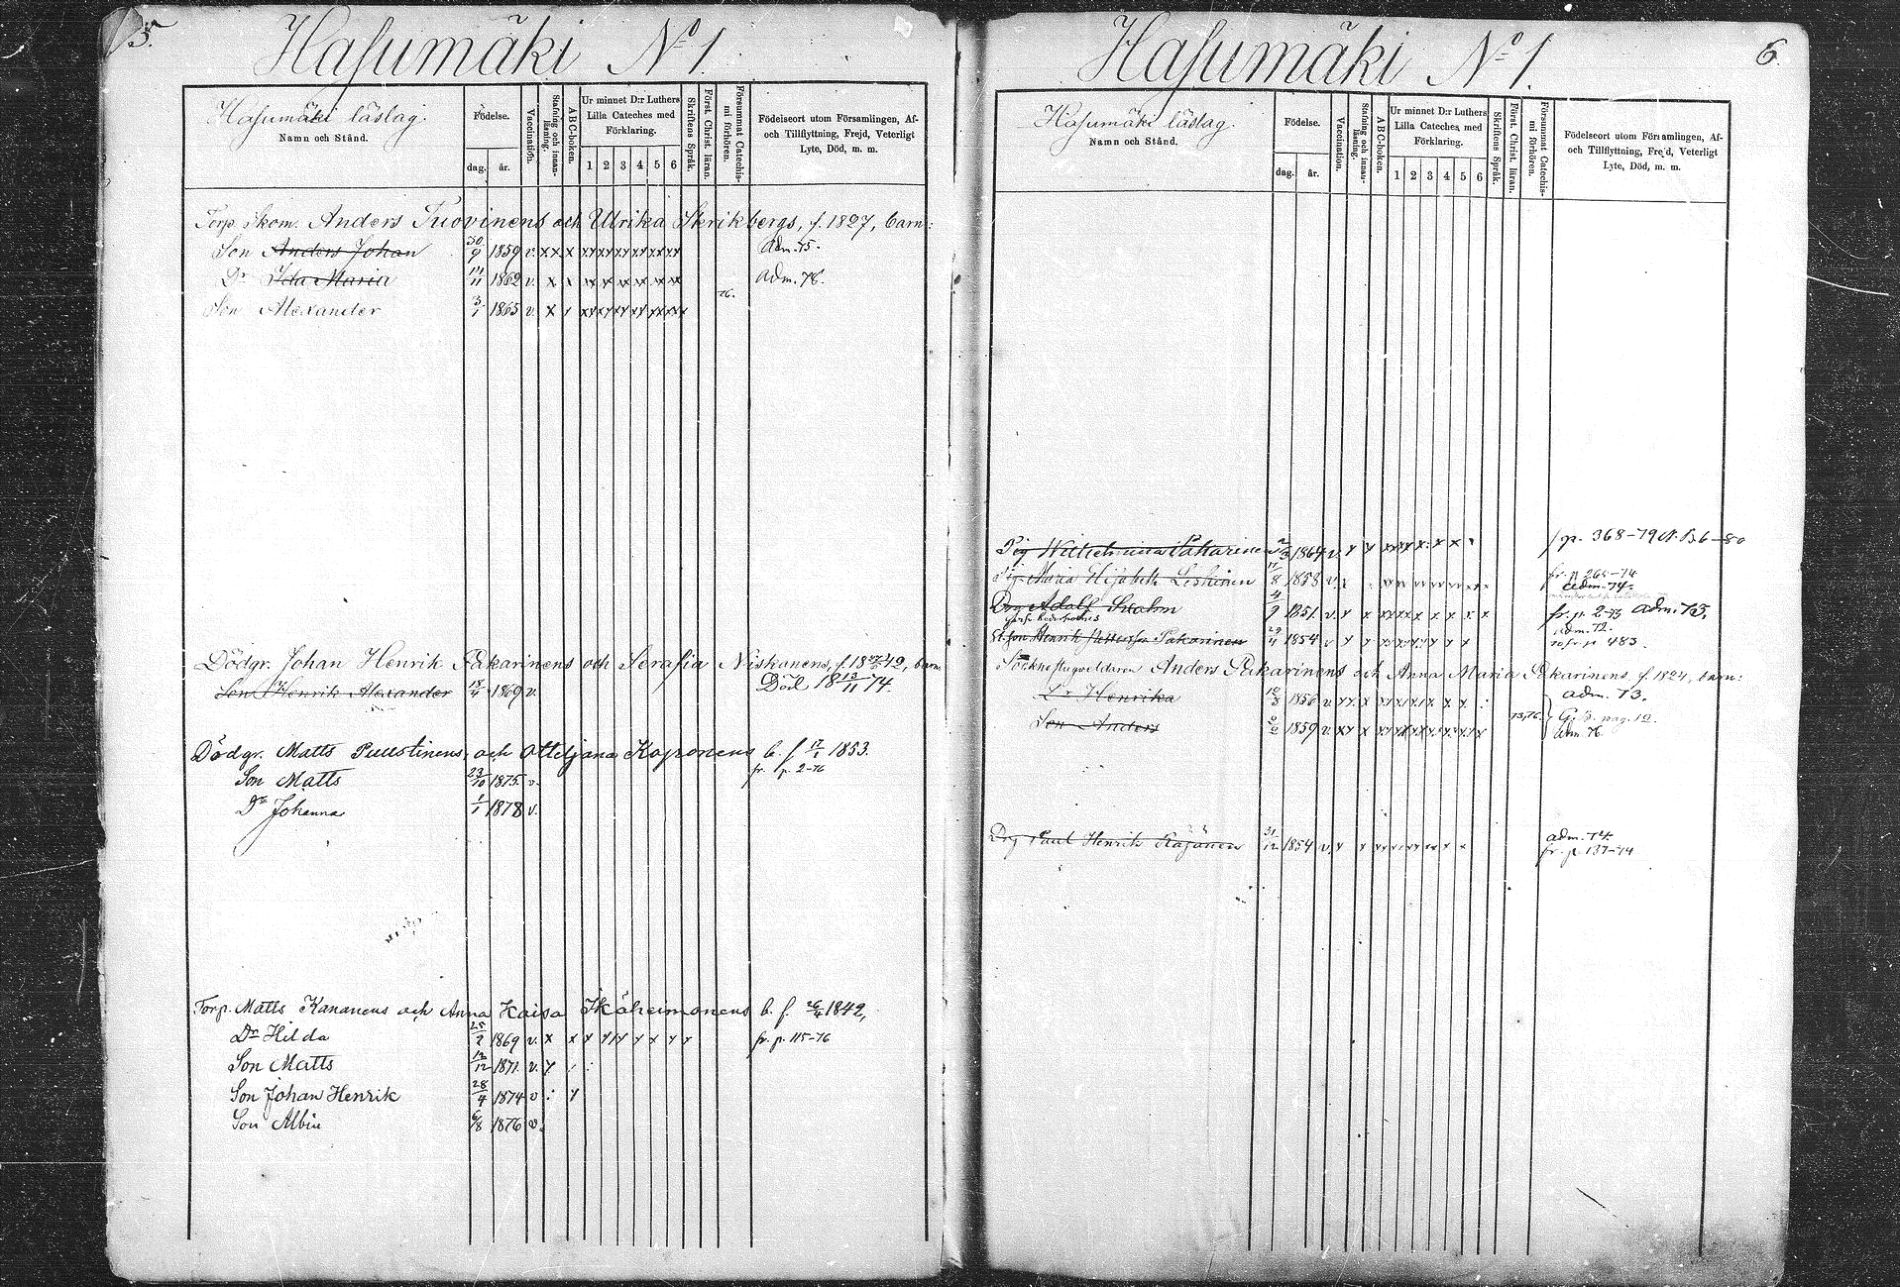 5.
Hasumäki No 1.
Hasumäki läslag.
Namn och Stånd.
Födelse.
dag. år.
Vaccination.
Stafning och innan-läsning.
ABC-boken.
Ur minnet D:r Luthers Lilla Cateches med Förklaring.
1 2 3 4 5 6
Skriftens Språk.
Först. Christ. läran.
Försummat Catechis-mi förhören.
Födelseort utom Församlingen, Af- och Tillflyttning, Frejd, Veterligt Lyte, Död, m. m.
Torp. Skom. Anders Tuovinens och Ulrika Skrikbergs, f. 1827, barn:
Son Anders Johan 30/9 1859 v. x x x xx xx xx xx xx xx adm. 75.
Dr Ida Maria 1862 v. x x xx xx xx xx xx xx adm. 78.
76.
Son Alexander 3/1 1865 v. x x xx xx xx xx xx xx
Dödgr. Johan Henrik Pakarinens och Serafia Niskanens, barn
Son Henrik Alexander 18/4 1869 v. Död 18 12/11 74.
Dödgr. Matts Puustinens och Ottiljana Koponens b. f 17/1 1853.
Son Matts 23/10 1875 v. fr. p. 2-76
Dr Johanna 1/1 1878 v.
Torp. Matts Kananens och Anna Kaisa Ikäheimonens b. f. 26/4 1842,
Dr Hilda 25/2 1869 v. x x x x x x x x fr. p. 115-76
Son Matts 12/12 1871 v. x
Son Johan Henrik 28/4 1874 v x
Son Albin 6/8 1876 v.
6.
Hasumäki No 1.
Hasumäki läslag.
Namn och Stånd.
Födelse.
dag. år.
Vaccination.
Stafning och innan-läsning.
ABC-boken.
Ur minnet D:r Luthers Lilla Cateches, med Förklaring.
1 2 3 4 5 6
Skriftens Språk.
Först. Christ. läran.
Försummat Catechis-mi förhören.
Födelseort utom Församlingen, Af- och Tillflyttning, Frejd, Veterligt Lyte, Död, m. m.
Pig Pakarinen 2/3 1864 v. p. 368-79
Pig Maria Elisabeth Leskinen 1858 v. fr. p 265-74
adm. 74.
Drg Adolf 4/9 1851 v. x x fr. p. 2-73 adm. 73,
adm. 72.
Henrik Pakarinen 1854 v x x p 483.
Anders Pakarinens och Anna Maria Pakarinens, f. 1824, barn:
Dr Henrika 1856 v adm. 73.
Son Anders 1859 v. 73,76. pag. 12.
adm. 76.
Drg Paul Henrik 31/12 1854 v. adm. 74.
fr. p. 137-74